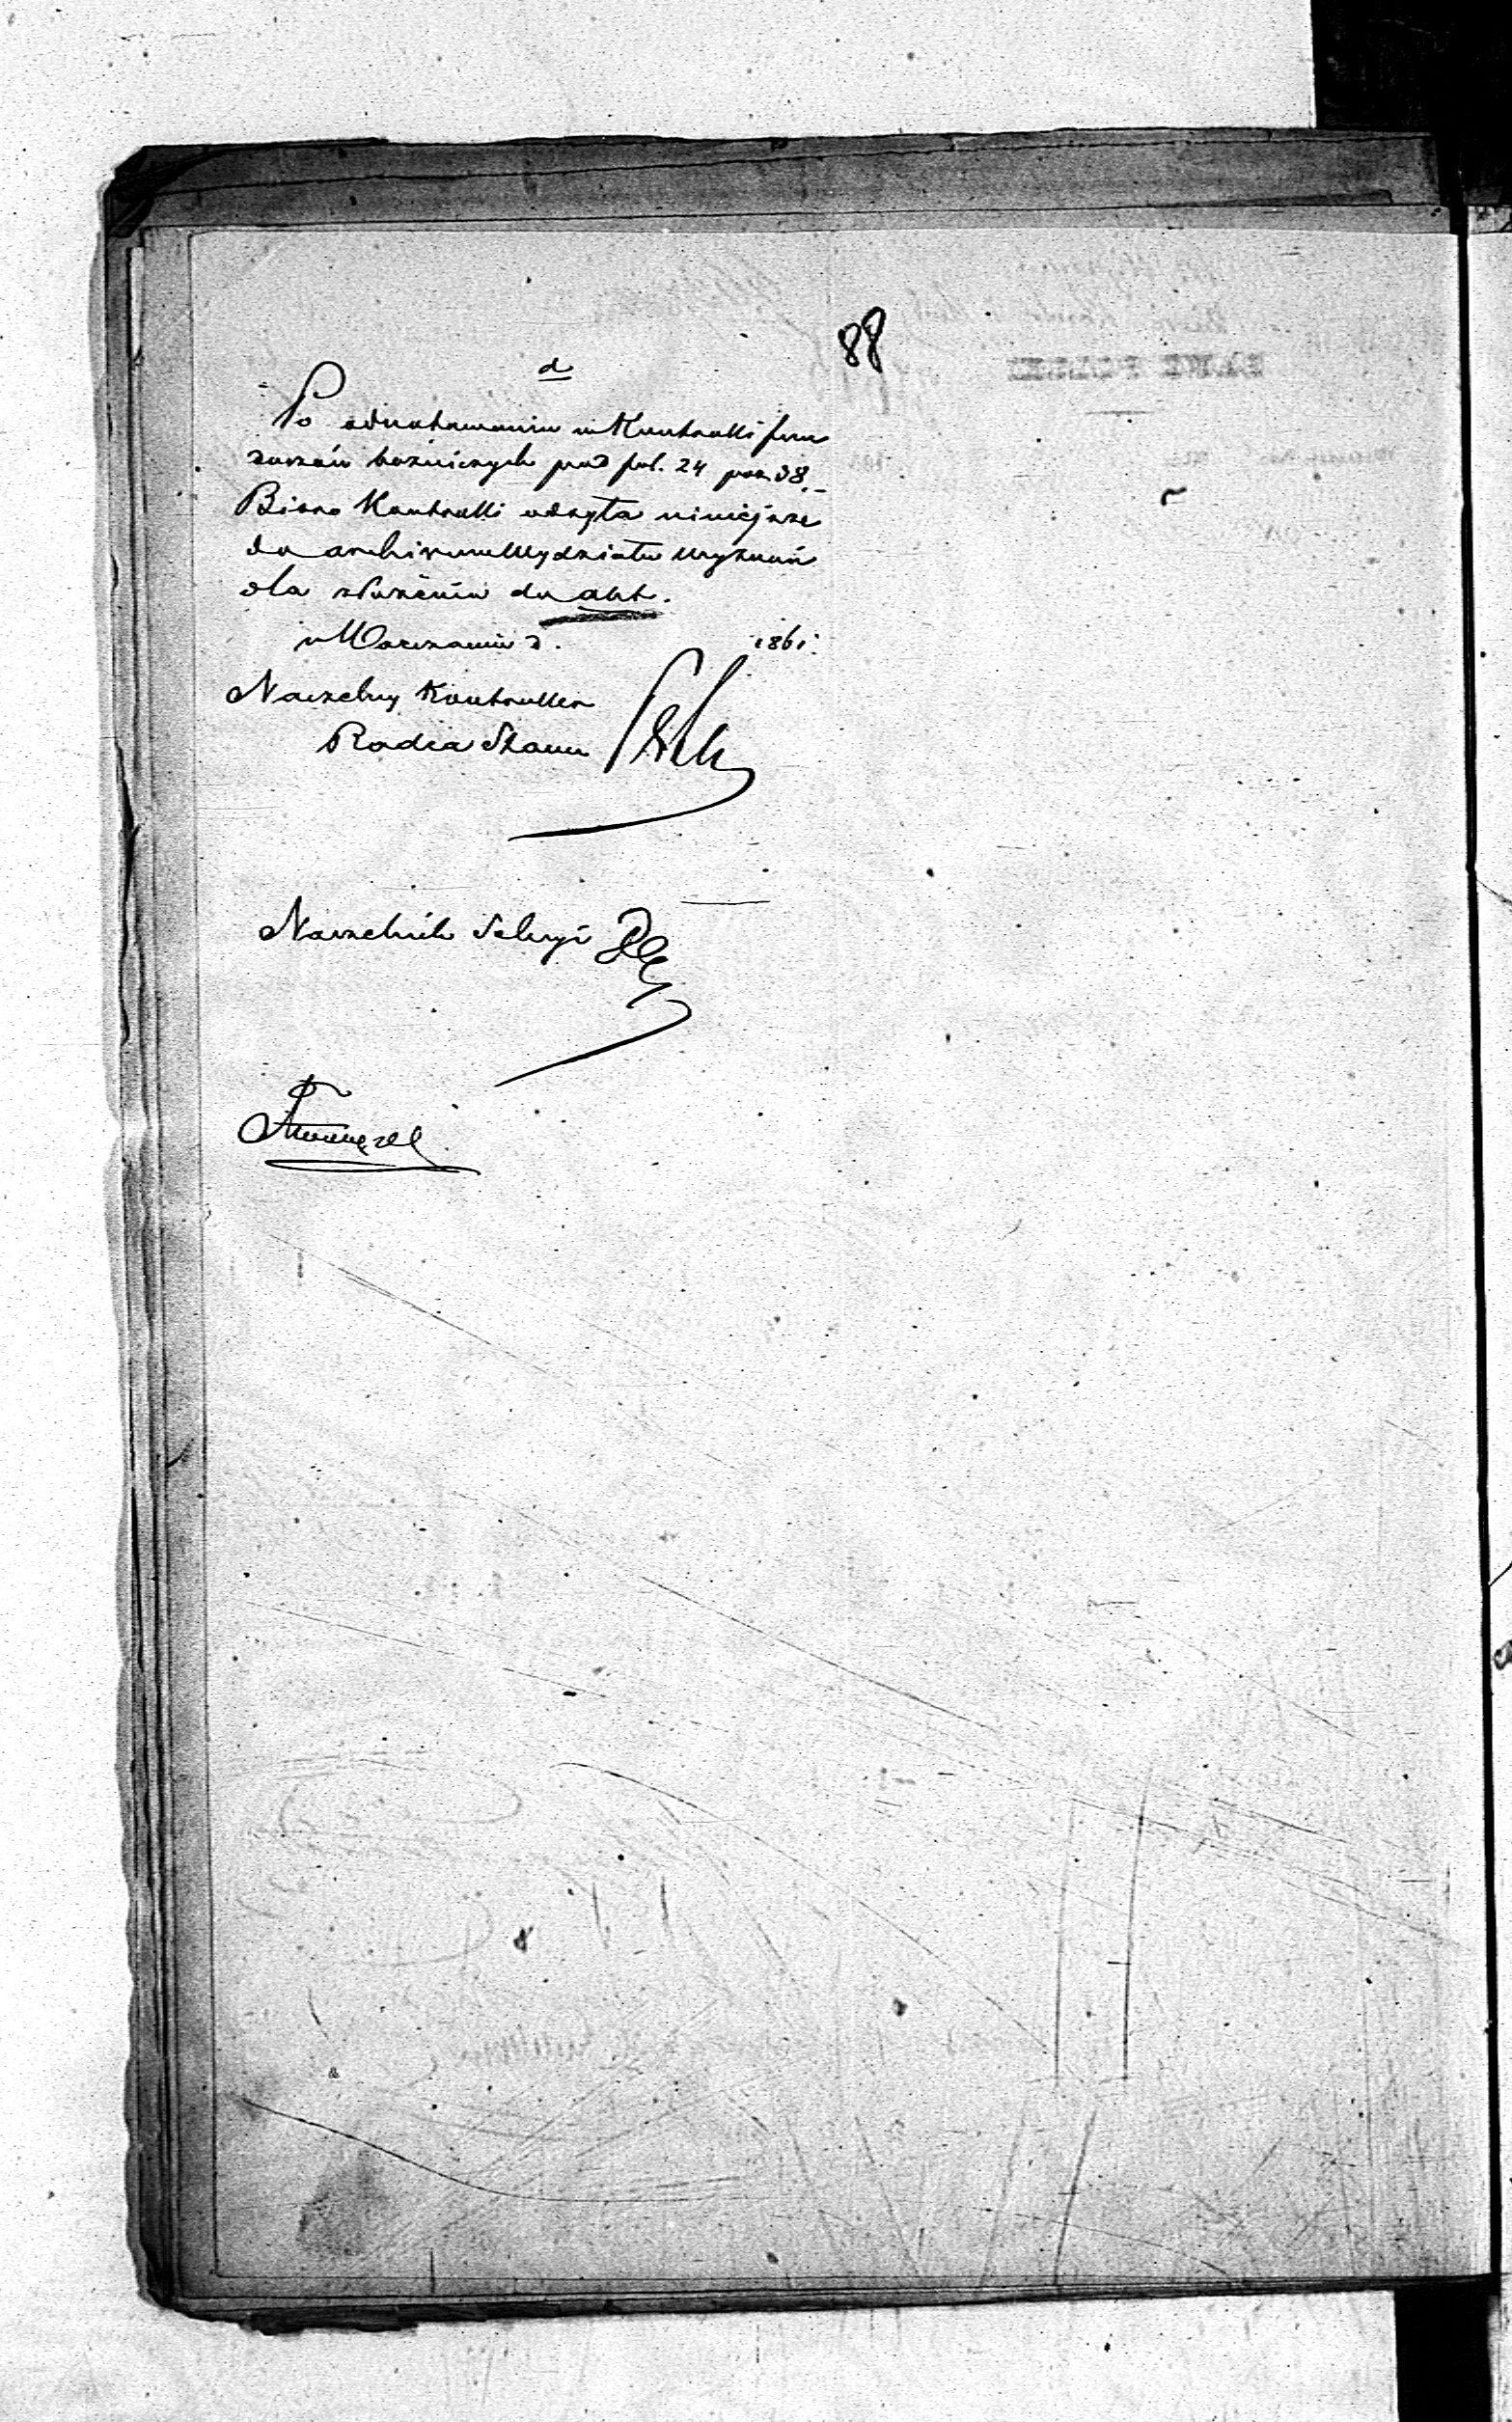 88
d
Po odnotowaniu w Kontrolli fun
duszów bóżniczych pod fol. 24 poz. 38.
Biuro Kontrolli odsyła niniejsze
do archiwum Wydziału Wyznań
dla złożenia do akt.
w Warszawie d. 1861.
Naczelny Kontroller
Radca Stanu
Naczelnik Sekcyi